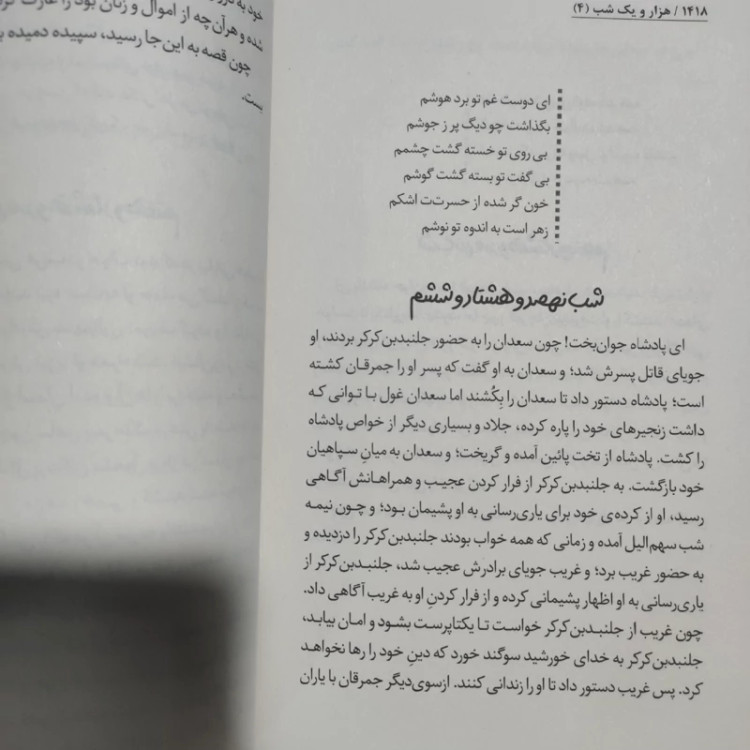 ۱۴۱۸ / هزار و یک شب (۴)
ای دوست غم تو برد هوشم
بگذاشت چو دیگ پر ز جوشم
بی روی تو خسته گشت چشمم
بی گفت تو بسته گشت گوشم
خون گر شده از حسرتت اشکم
زهر است به اندوه تو نوشم
شب نهصد و هشتاد و ششم
ای پادشاه جوان‌بخت! چون سعدان را به حضور جلندبن‌کرکر بردند، او
جویای قاتل پسرش شد؛ و سعدان به او گفت که پسر او را جمرقان کشته
است؛ پادشاه دستور داد تا سعدان را بِکُشند اما سعدان غول با توانی که
داشت زنجیرهای خود را پاره کرده، جلاد و بسیاری دیگر از خواص پادشاه
را کشت. پادشاه از تخت پائین آمده و گریخت؛ و سعدان به میانِ سپاهیان
خود بازگشت. به جلندبن‌کرکر از فرار کردن عجیب و همراهانش آگاهی
رسید، او از کرده‌ی خود برای یاری‌رسانی به او پشیمان بود؛ و چون نیمه
شب سهم‌الیل آمده و زمانی که همه خواب بودند جلندبن‌کرکر را دزدیده و
به حضور غریب برد؛ و غریب جویای برادرش عجیب شد، جلندبن‌کرکر از
یاری‌رسانی به او اظهار پشیمانی کرده و از فرار کردنِ او به غریب آگاهی داد.
چون غریب از جلندبن‌کرکر خواست تا یکتاپرست بشود و امان بیابد،
جلندبن‌کرکر به خدای خورشید سوگند خورد که دینِ خود را رها نخواهد
کرد. پس غریب دستور داد تا او را زندانی کنند. ازسوی‌دیگر جمرقان با یاران
شده و هرآن‌چه از اموال و زنان بود را غارت
چون قصه به این جا رسید، سپیده دمیده
بست.